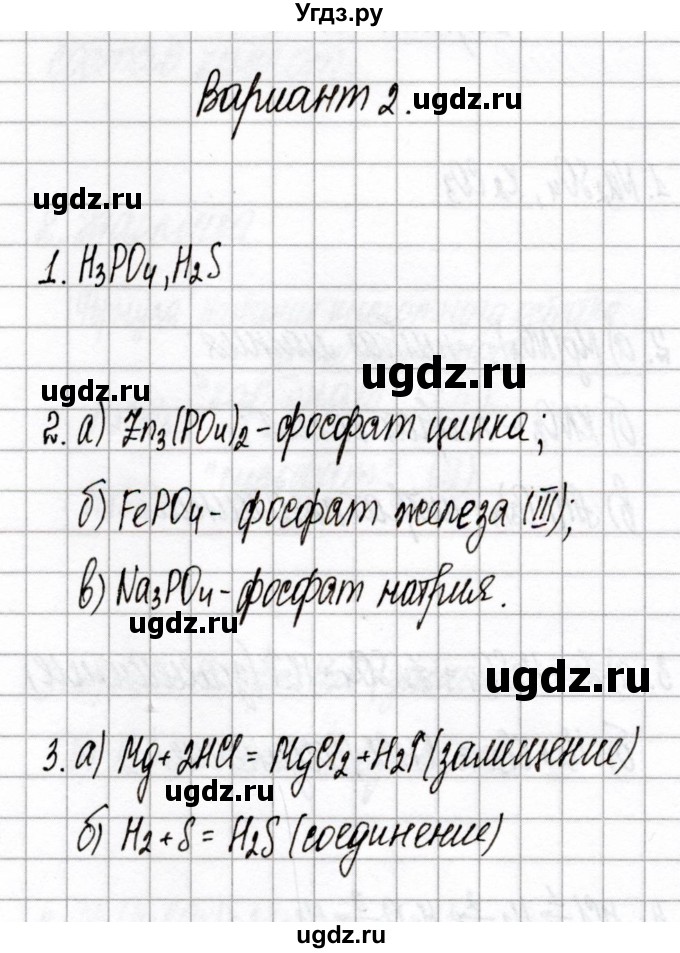 Угдз.ру
Вариант 2. ugdz.ru
ugdz.ru
1. H₃PO₄, H₂S
ugdz.ru
ugdz.ru
2. а) Zn₃(PO₄)₂ - фосфат цинка;
б) FePO₄ - фосфат железа (III);
в) Na₃PO₄ - фосфат натрия.
ugdz.ru
ugdz.ru
3. а) Mg + 2HCl = MgCl₂ + H₂↑ (замещение)
ugdz.ru
б) H₂ + S = H₂S (соединение)
ugdz.ru